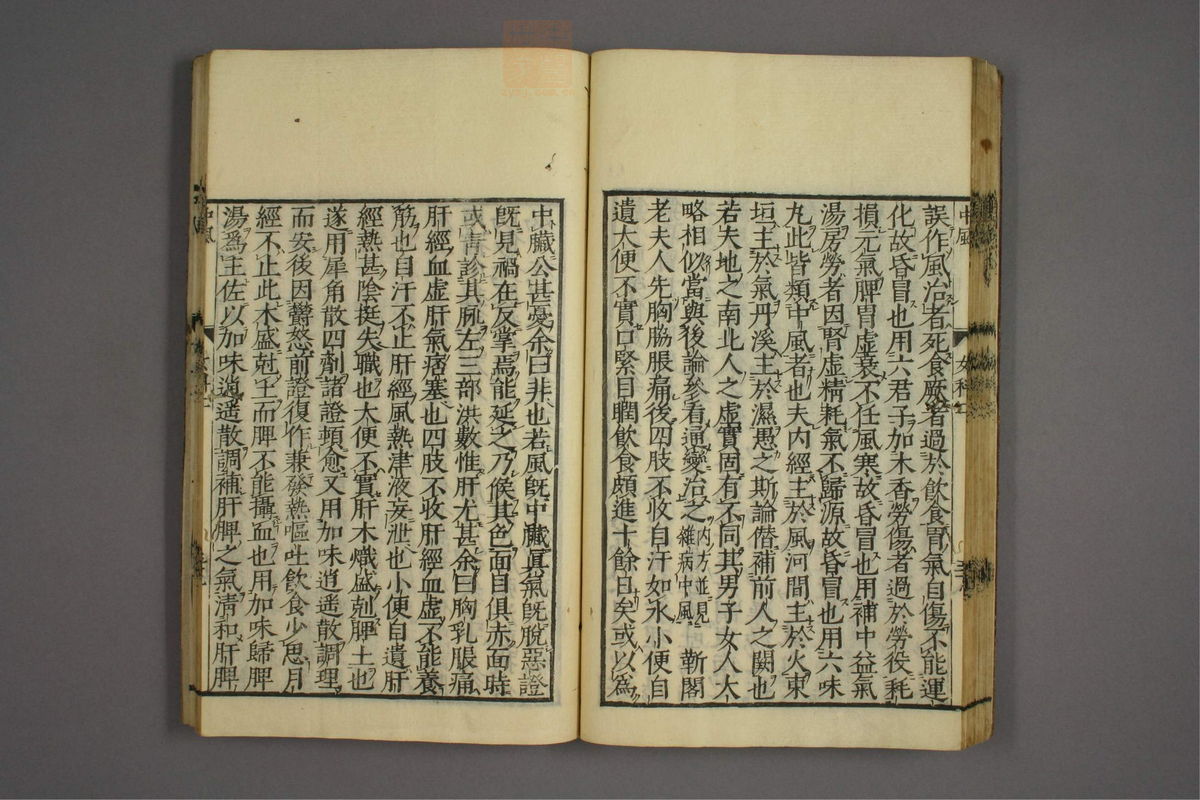 誤作風治者死食厥者過於飮食胃氣自傷不能運
化故昏冒也用六君子加木香勞傷者過於勞役耗
損元氣脾胃虛衰不任風寒故昏冒也用補中益氣
湯房勞者因腎虛精耗氣不歸源故昏冒也用六味
丸此皆類中風者也夫内經主於風河間主於火東
垣主於氣丹溪主於濕愚之斯論僣補前人之闕也
若夫地之南北人之虛實固有不同其男子女人大
略相似當與後論參看通變治之内方並見雜病中風 靳閣
老夫人先胸脇脹痛後四肢不收自汗如水小便自
遺大便不實口緊目瞤飮食頗進十餘日矣或以爲
中臟公甚憂余曰非也若風旣中臟眞氣旣脫惡證
旣見禍在反掌焉能延之乃候其色面目俱赤面時
或青診其脈左三部洪數惟肝尤甚余曰胸乳脹痛
肝經血虛肝氣痞塞也四肢不收肝經血虛不能養
筋也自汗不止肝經風熱津液妄泄也小便自遺肝
經熱甚陰挺失職也大便不實肝木熾盛尅脾土也
遂用犀角散四劑諸證頓愈又用加味逍遙散調理
而安後因欝怒前證復作兼發熱嘔吐飮食少思月
經不止此木盛尅土而脾不能攝血也用加味歸脾
湯爲主佐以加味逍遙散調補肝脾之氣清和肝脾
中風
女科
中風